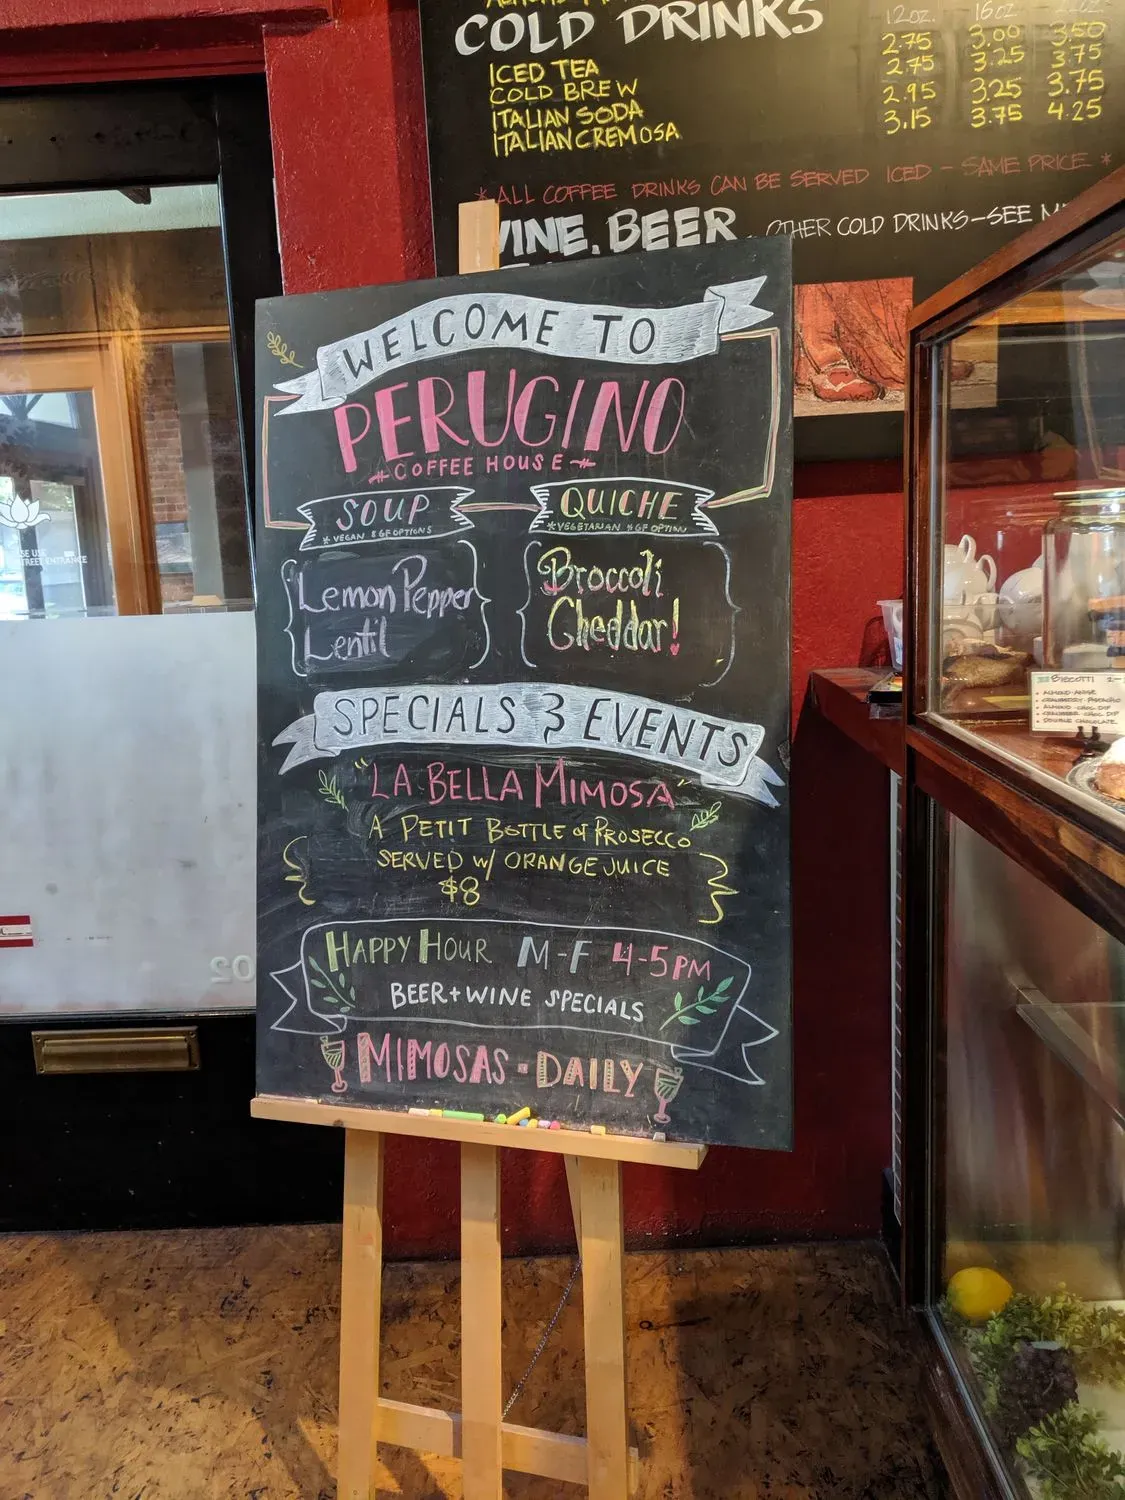 COLD DRINKS 12oz. 16oz
2.75 3.00 3.50
ICED TEA 2.75 3.25 3.75
COLD BREW 2.95 3.25 3.75
ITALIAN SODA 3.15 3.75 4.25
ITALIAN CREMOSA
* ALL COFFEE DRINKS CAN BE SERVED ICED - SAME PRICE *
WINE, BEER OTHER COLD DRINKS - SEE
WELCOME TO
PERUGINO
COFFEE HOUSE
SOUP
* VEGAN & GF OPTIONS
Lemon Pepper
Lentil
QUICHE
* VEGETARIAN * GF OPTION
Broccoli
Cheddar!
SPECIALS & EVENTS
"LA BELLA MIMOSA"
A PETIT BOTTLE of PROSECCO
SERVED w/ ORANGE JUICE
$8
HAPPY HOUR M-F 4-5PM
BEER + WINE SPECIALS
MIMOSAS - DAILY
BISCOTTI
• ALMOND ANISE
• CRANBERRY PISTACHIO
• ALMOND CHOC DIP
• CRANBERRY CHOC DIP
• DOUBLE CHOCOLATE
USE
STREET ENTRANCE